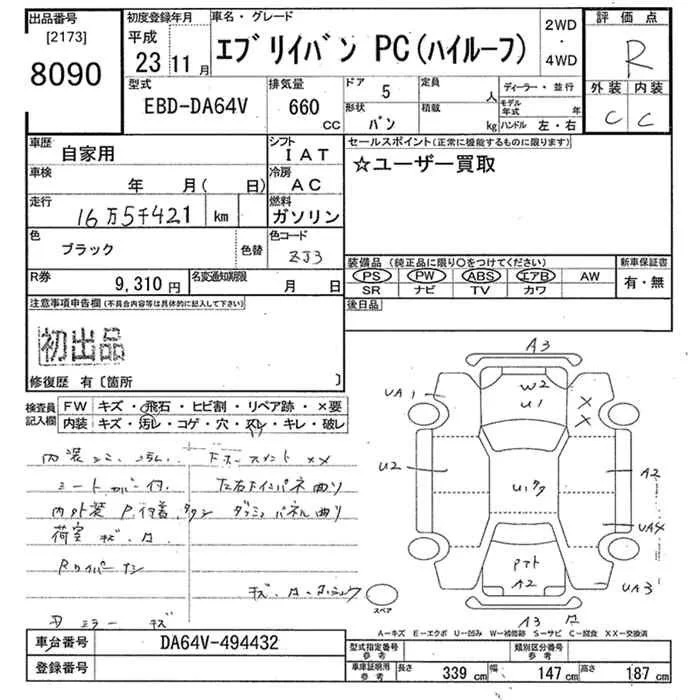 出品番号
[2173]
8090
初度登録年月
平成
23 11月
車名・グレード
エブリイバン PC(ハイルーフ)
2WD
・
4WD
評価点
R
外装 内装
C C
型式
EBD-DA64V
排気量
660
CC
ドア 5
形状 バン
定員 人
積載 kg
ディーラー・並行
モデル年式 年
ハンドル 左・右
車歴 自家用
シフト IAT
車検 年 月( 日)
冷房 AC
走行 16万5千421 km
燃料 ガソリン
色 ブラック 色替
色コード ZJ3
R券 9,310円
名変通知期限 月 日
セールスポイント(正常に機能するものに限ります)
☆ユーザー買取
装備品(純正品に限り○をつけてください)
PS PW ABS エアB AW
SR ナビ TV カワ
新車保証書
有・無
後日品
注意事項申告欄(不具合内容等は具体的に記入して下さい)
初出品
修復歴 有〔箇所 〕
検査員記入欄
FW キズ・飛石・ヒビ割・リペア跡・×要
内装 キズ・汚レ・コゲ・穴・スレ・キレ・破レ
シートカバー付
左右インパネ曲り
荷室キズ
Rワイパーナシ
ミラー キズ
A3
W2
U1
UA1
×
×
U2
A2
UA4
A2
UA3
A3
スペア
A-キズ E-エクボ U-凹み W-補修跡 S-サビ C-腐食 XX-交換済
車台番号 DA64V-494432
登録番号
型式指定番号 参考
類別区分番号 参考
車庫証明用 参考
長さ 339 cm 幅 147 cm 高さ 187 cm